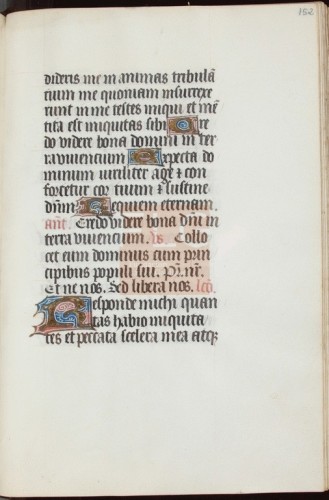 152
dideris me in animas tribulā
tium me quoniam insurrexe
runt in me testes iniqui et mē
tita est iniquitas sibi Cre
do videre bona domini in ter
ra viventium Expecta do
minum viriliter age ⁊ con
fortetur cor tuum ⁊ sustine
dn̄m Requiem eternam.
an̄t. Credo videre bona dn̄i in
terra viventium. v̄s. Collo
cet eum dominus cum prin
cipibus populi sui. Pr̄. nr̄.
Et ne nos. Sed libera nos. lc̄o.
Responde michi quan
tas habeo iniquita
tes et peccata scelera mea atqꝫ